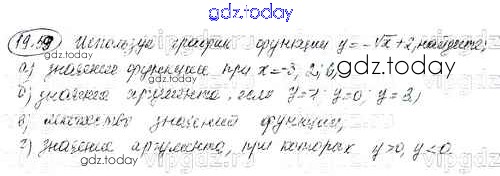 gdz.today
19.59 Используя график функции y=-√x+2, найдите:
gdz.today
а) значение функции при x=-3, 2, 6,
gdz.today
б) значения аргумента, если y=1, y=0, y=3,
в) множество значений функции,
г) значения аргумента, при которых y>0, y<0.
gdz.today